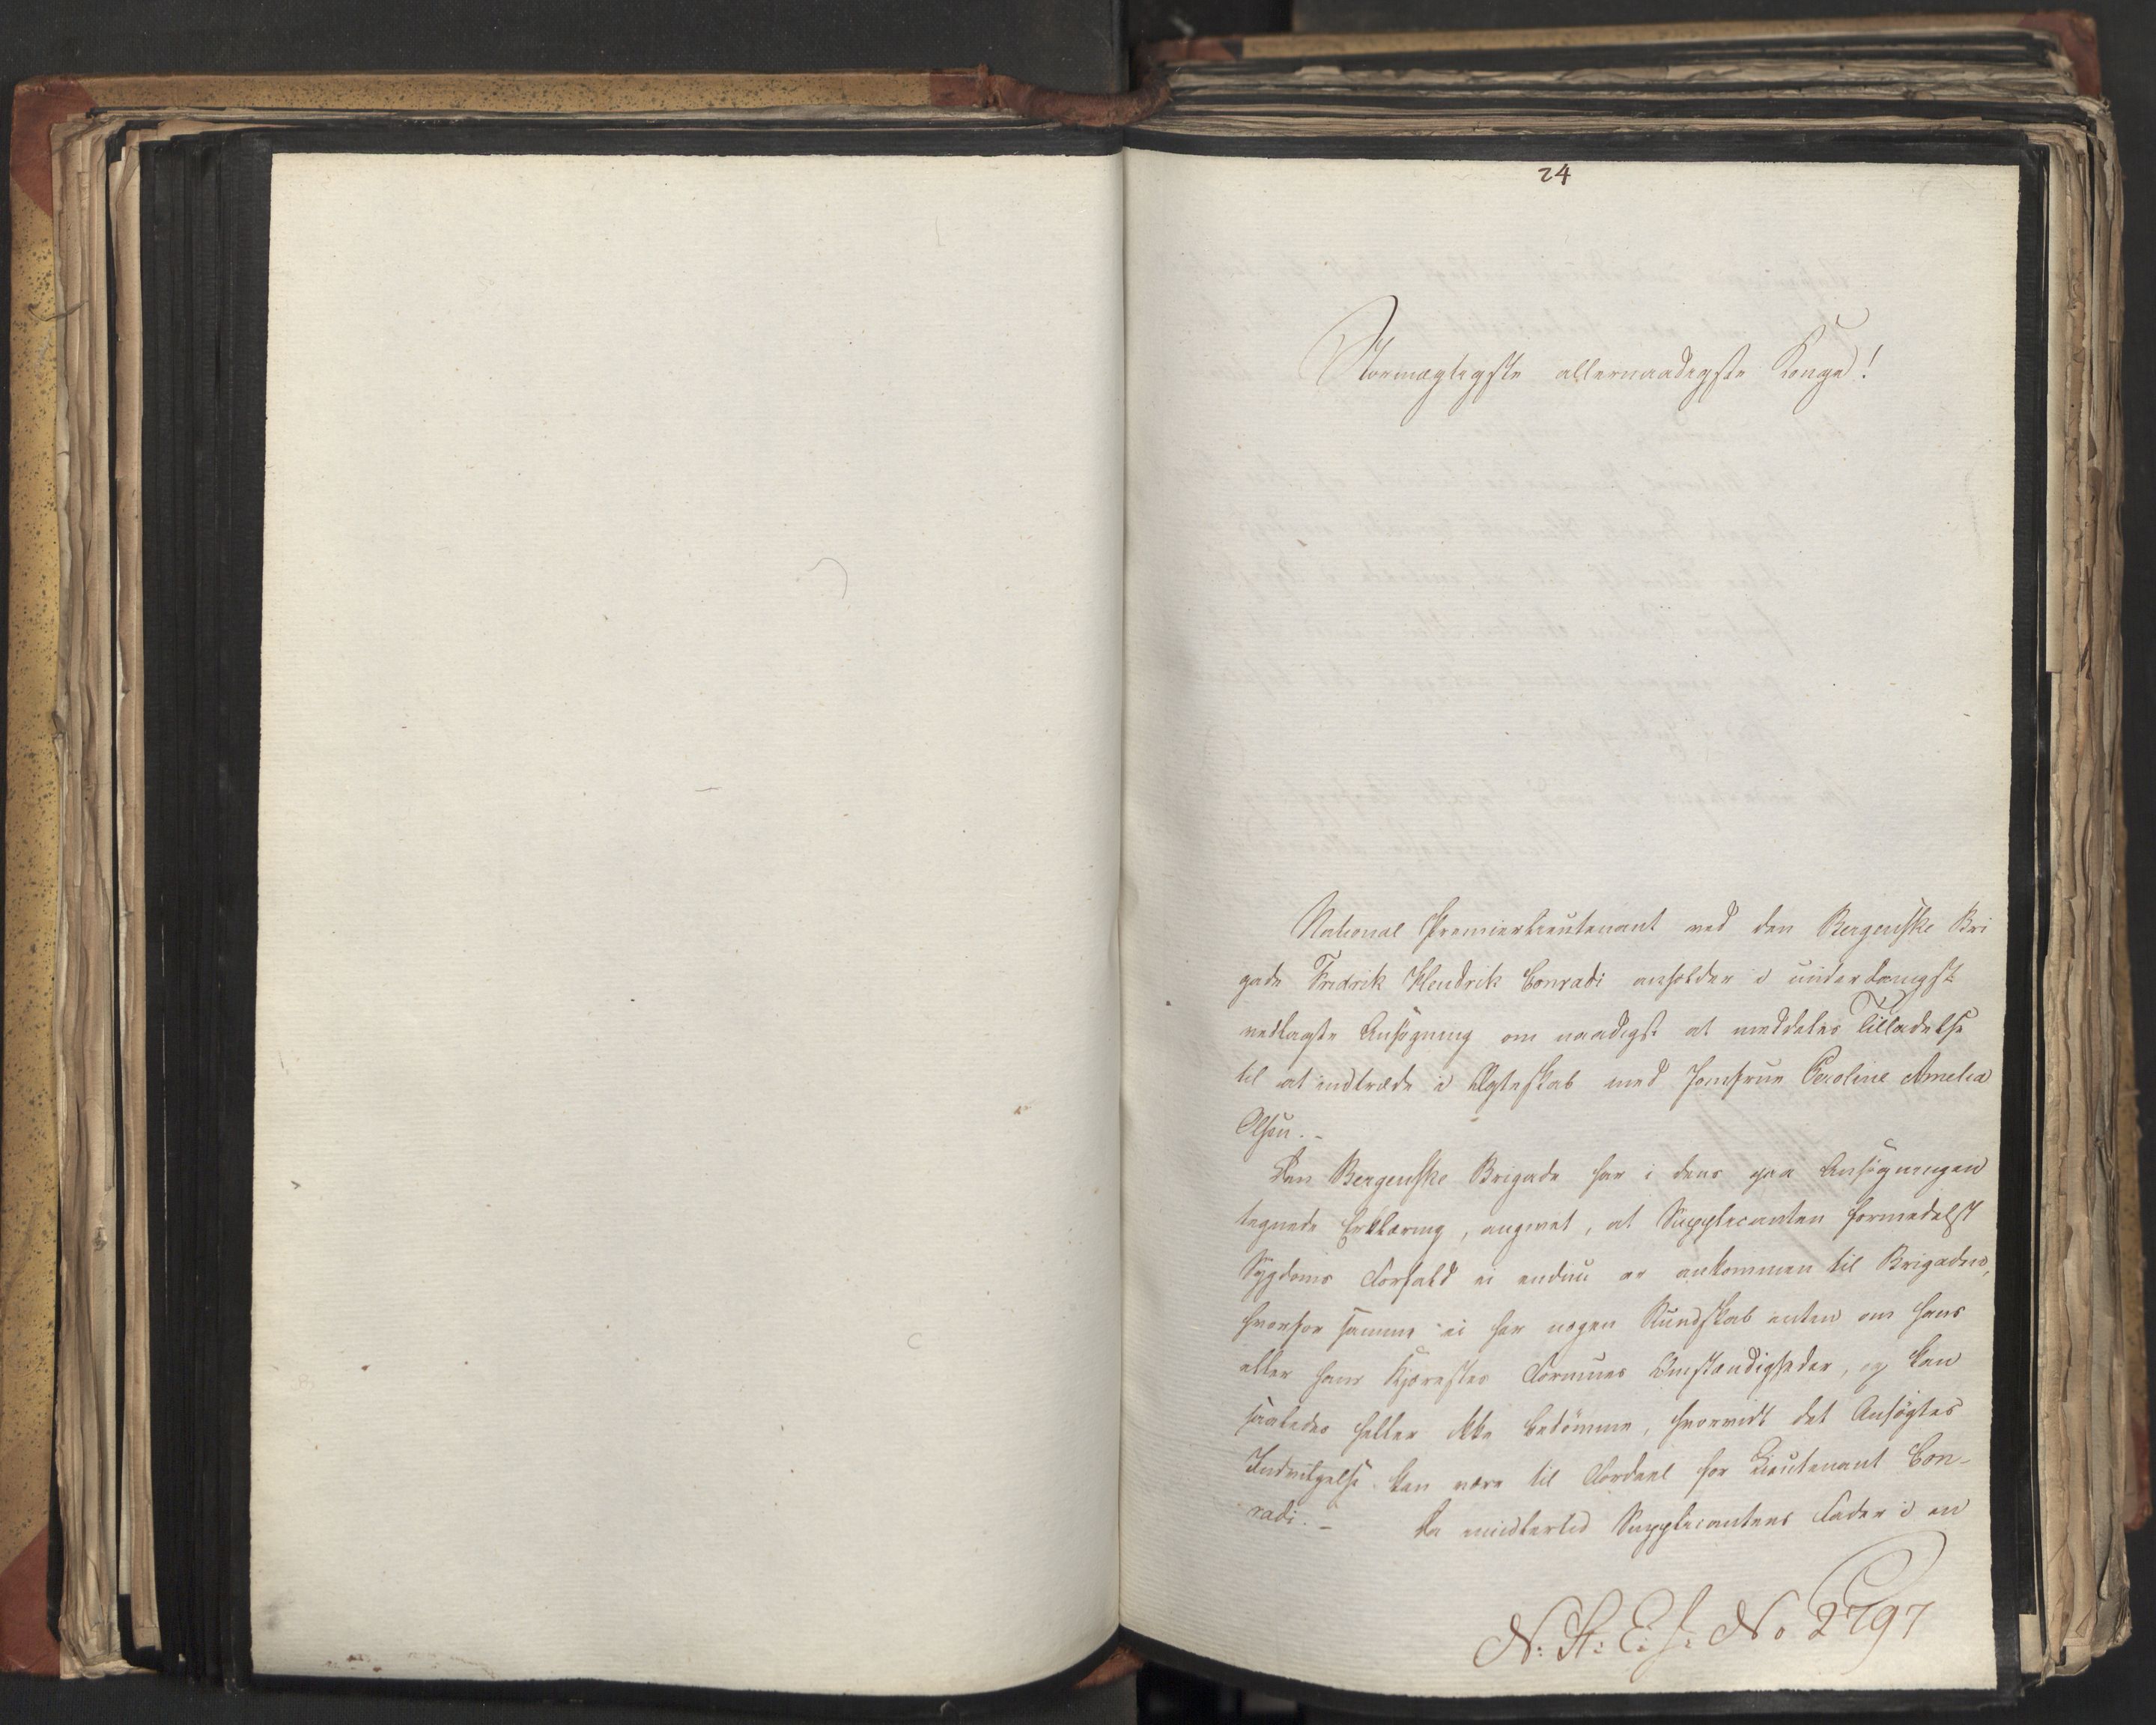 24
Stormægtigste allernaadigste Konge!
National Premierlieutenant ved den Bergenske Bri
gade Fredrik Hendrik Conradi anholder i underdanigst
vedlagte Ansøgning om naadigst at meddeles Tilladelse
til at indtræde i Ægteskab med Jomfrue Caroline Amelia
Olsen. -
Den Bergenske Brigade har i dens paa Ansøgningen
tegnede Erklæring, angivet, at Supplicanten formedelst
Sygdoms Forfald ei endnu er ankommen til Brigaden,
hvorfor samme ei har nogen Kundskab enten om hans
eller hans Kjærestes Formues Omstændigheder, og kan
saaledes heller ikke bedømme, hvorvidt det Ansøgtes
Indvilgelse kan være til Fordeel for Lieutenant Con-
radi. - Da imidlertid Supplicantens Fader i en
N: St: E: J: No 2797